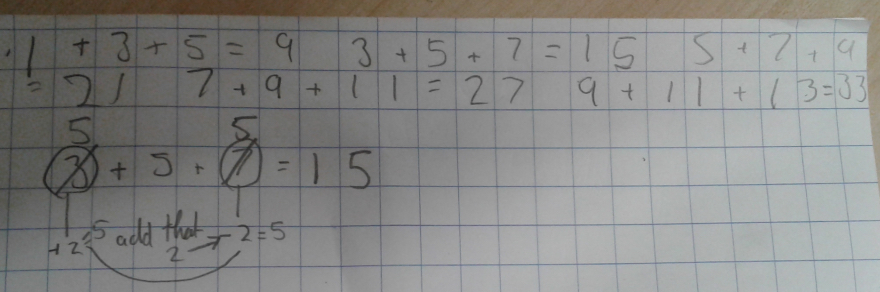 1 + 3 + 5 = 9 3 + 5 + 7 = 15 5 + 7 + 9
= 21 7 + 9 + 11 = 27 9 + 11 + 13 = 33
5 5
3 + 5 + 7 = 15
+2=5 add that -2=5
2